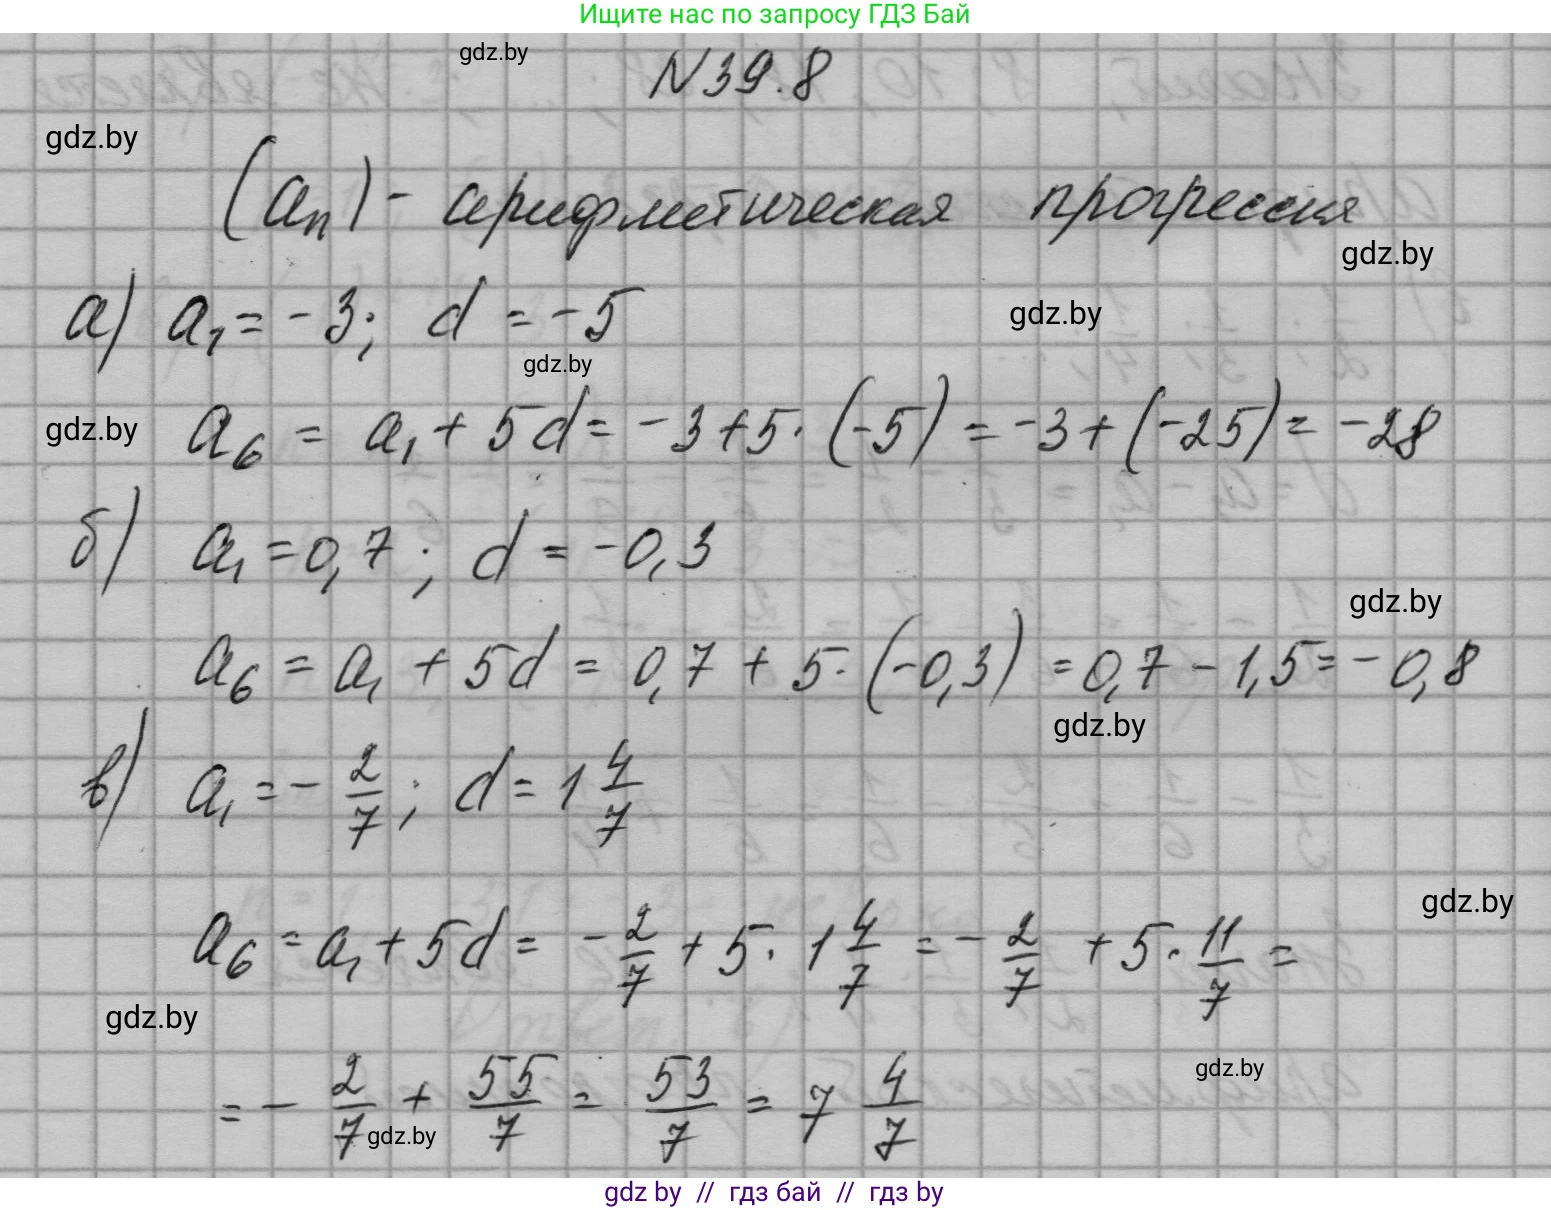 Ищите нас по запросу ГДЗ Бай
gdz.by
N39.8
gdz.by
(aₙ) - арифметическая прогрессия
gdz.by
а) a₁ = -3; d = -5
gdz.by
gdz.by
gdz.by
a₆ = a₁ + 5d = -3 + 5·(-5) = -3 + (-25) = -28
б) a₁ = 0,7; d = -0,3
gdz.by
a₆ = a₁ + 5d = 0,7 + 5·(-0,3) = 0,7 - 1,5 = -0,8
gdz.by
в) a₁ = - 2/7; d = 1 4/7
gdz.by
a₆ = a₁ + 5d = - 2/7 + 5· 1 4/7 = - 2/7 + 5· 11/7 =
gdz.by
gdz.by
= - 2/7 + 55/7 = 53/7 = 7 4/7
gdz.by
gdz by // гдз бай // гдз by